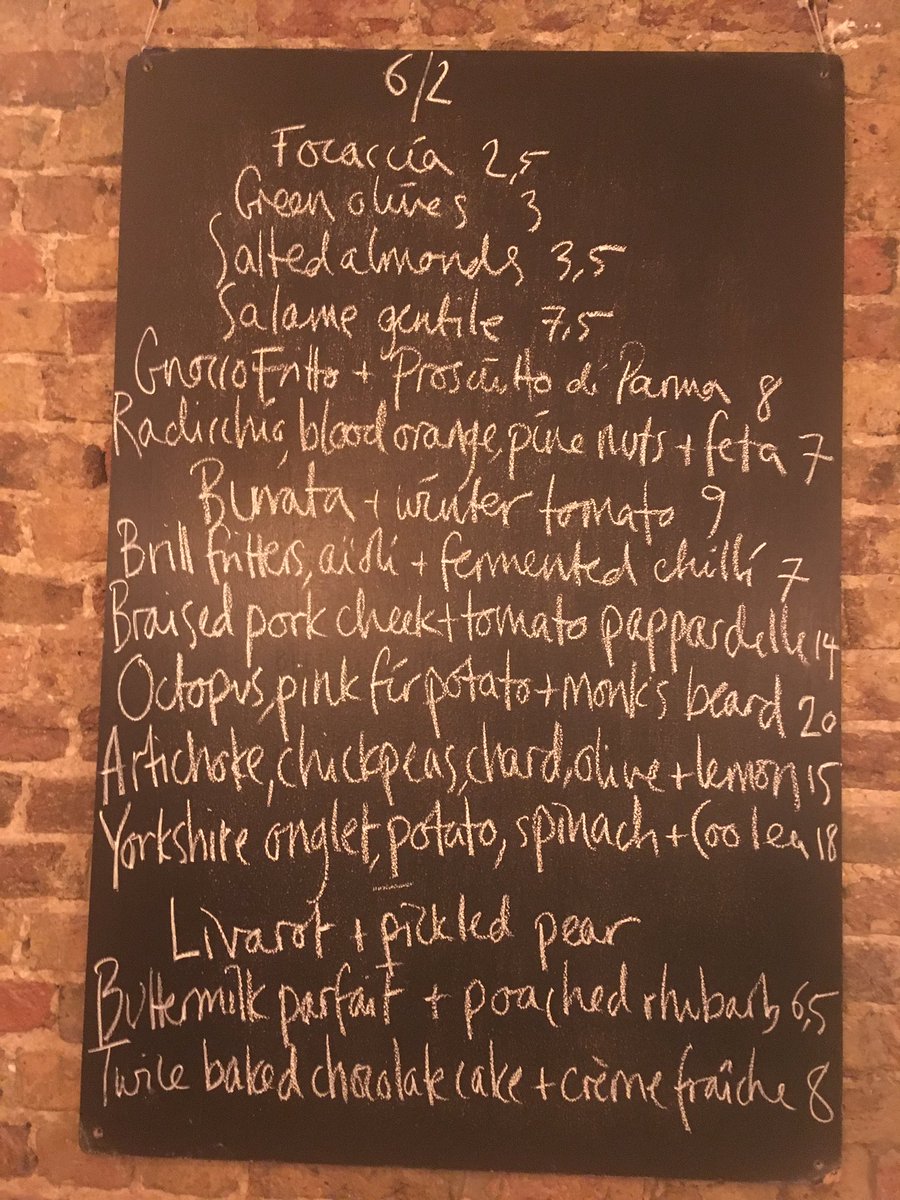 6/2
Focaccia 2,5
Green olives 3
Salted almonds 3,5
Salame gentile 7,5
Gnocco Fritto + Prosciutto di Parma 8
Radicchio, blood orange, pine nuts + feta 7
Burrata + winter tomato 9
Brill fritters, aïoli + fermented chilli 7
Braised pork cheek + tomato pappardelle 14
Octopus, pink fir potato + monk's beard 20
Artichoke, chickpeas, chard, olive + lemon 15
Yorkshire onglet, potato, spinach + Coolea 18
Livarot + pickled pear
Buttermilk parfait + poached rhubarb 6,5
Twice baked chocolate cake + crème fraîche 8